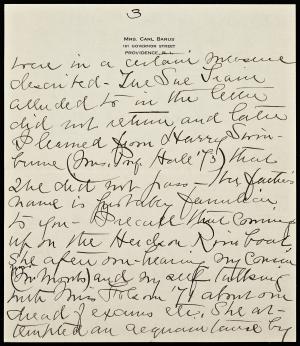 3
MRS. CARL BARUS
181 GOVERNOR STREET
PROVIDENCE, R.I.
were in a certain measure
described - The Sue
alluded to in the letter
did not return and later
I learned from Harry
(Mrs. Hall '73) that
she did not pass - the latter's
name is probably familiar
to you - I recall that coming
up on the Hudson River boat,
she after over-hearing my cousin
and my self talking
with Miss Folsom '71 about our
dread of exams etc. She at-
tempted an acquaintance by